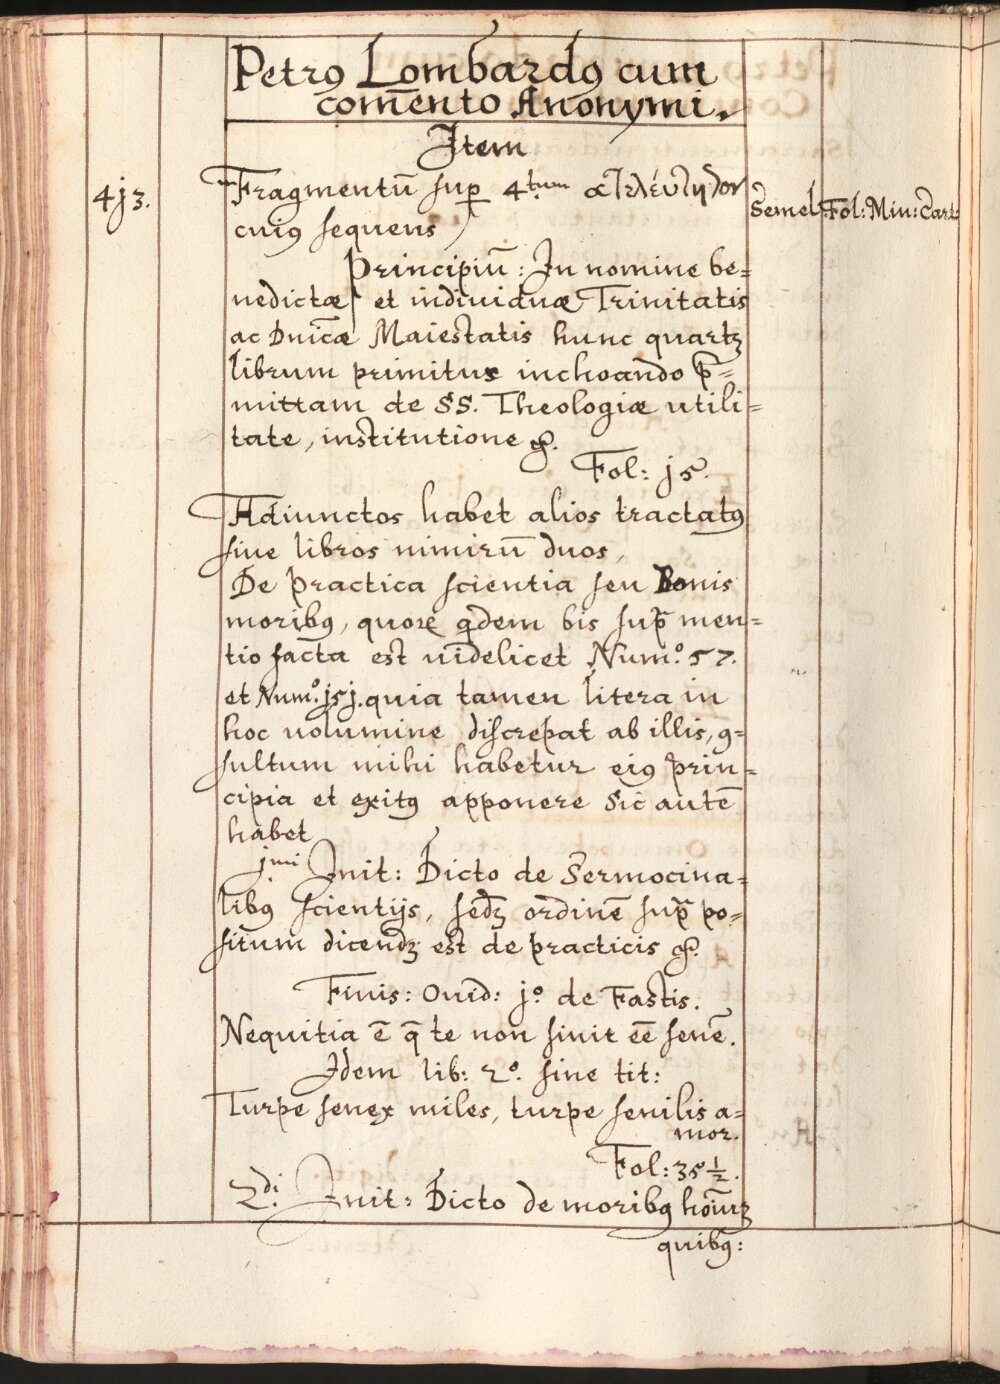 Petrꝯ Lombardꝯ cum
com̄ento Anonymi.
Item
4j3.
Fragmentū sup 4.tum
Semel
Fol: Min: Cart:
cuiꝯ sequens
Principiū: In nomine be=
nedictæ et indiuiduæ Trinitatis
ac Dnicæ Maiestatis hunc quartꝫ
librum primitus inchoando p̄=
mittam de SS. Theologiæ utili=
tate, institutione &.
Fol: j5.
Adiunctos habet alios tractatꝯ
siue libros nimirū duos,
De practica scientia seu Bonis
moribꝯ, quoꝝ qdem bis sup̄ men=
tio facta est uidelicet Num.º 57.
et Num.º j5j. quia tamen litera in
hoc uolumine discrepat ab illis, ꝯ=
sultum mihi habetur eiꝯ prin=
cipia et exitꝯ apponere Sic autē
habet
j.mi Init: Dicto de Sermocina=
libꝯ scientijs, sedꝫ ordinē sup̄ po=
situm dicendꝫ est de practicis &.
Finis: Ouid: j.º de Fastis.
Nequitia ē q̄ te non sinit eē senē.
Idem lib: 2.º siue tit:
Turpe senex miles, turpe senilis a=
mor.
Fol: 35 ½.
2.di Init: Dicto de moribꝯ hōiuꝫ
quibꝯ: